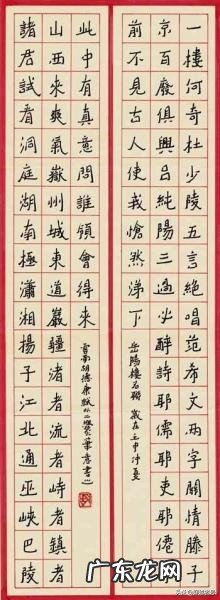 一樓何奇杜少陵五言絕唱范希文兩字關情滕子
京百廢俱興呂純陽三過必醉詩耶儒耶吏耶僊耶
前不見古人使我愴然涕下
岳陽樓名聯 歲在壬申仲夏
諸君試看洞庭湖南極瀟湘揚子江北通巫峽巴陵
山西來爽氣嶽州城東道巖疆渚者流者峙者鎮者
此中有真意問誰領會得來
雲南胡德康